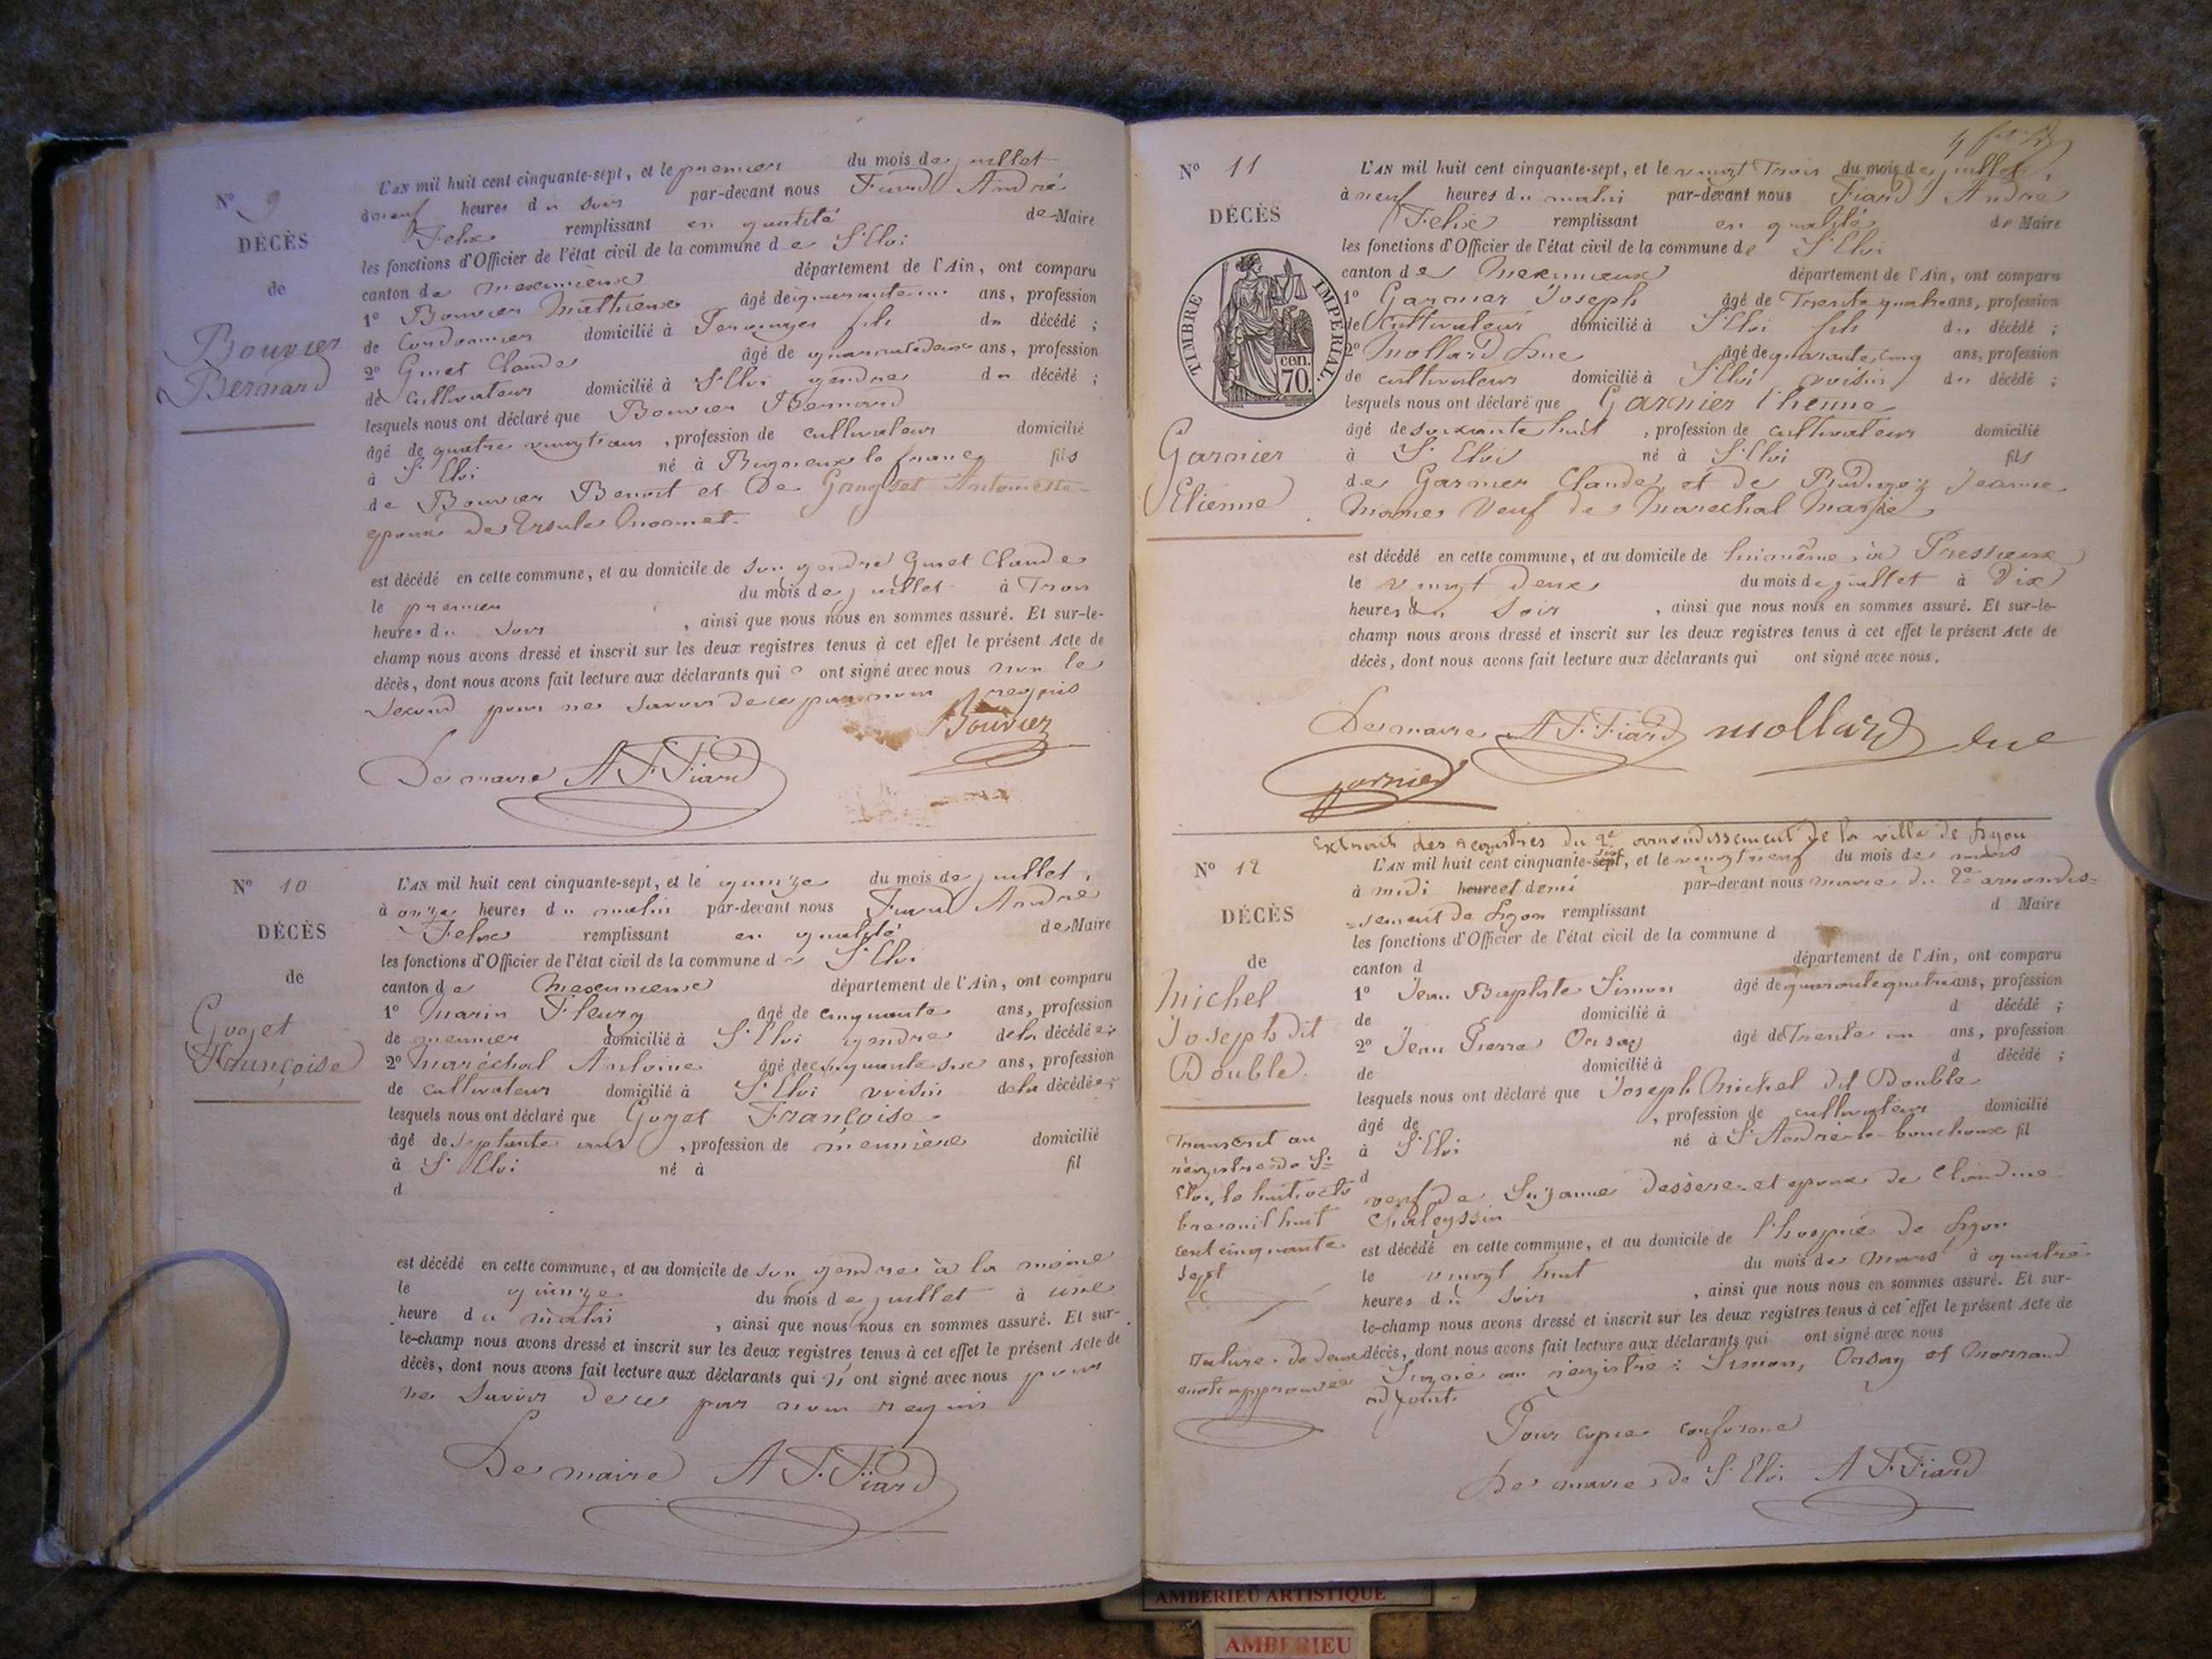 N° 9
DÉCÈS
de
Bouvier
Bernard
L'AN mil huit cent cinquante-sept, et le premier du mois de juillet
à neuf heures du soir par-devant nous Fiard André
Felix remplissant en qualité de Maire
les fonctions d'Officier de l'état civil de la commune de St Eloi
canton de Meximieux département de l'Ain, ont comparu
1° Bouvier Mathieu âgé de ans, profession
de Cordonnier domicilié à fils du décédé ;
2° Guet Claude âgé de quarante deux ans, profession
de Cultivateur domicilié à St Eloi gendre du décédé ;
lesquels nous ont déclaré que Bouvier Bernard
âgé de quatre vingt ans, profession de cultivateur domicilié
à St Eloi né à fils
de Bouvier Benoit et de Antoinette
epoux de Ursule Monnet.
est décédé en cette commune, et au domicile de son gendre Guet Claude
le premier du mois de juillet à Trois
heures du soir, ainsi que nous nous en sommes assuré. Et sur-le-
champ nous avons dressé et inscrit sur les deux registres tenus à cet effet le présent Acte de
décès, dont nous avons fait lecture aux déclarants qui ont signé avec nous non le
second pour ne savoir de ce par nous requis
Bouvier
Le maire A F Fiard
N° 10
DÉCÈS
de
Goyet
Françoise
L'AN mil huit cent cinquante-sept, et le quinze du mois de juillet,
à onze heures du matin par-devant nous Fiard André
Felix remplissant en qualité de Maire
les fonctions d'Officier de l'état civil de la commune de St Eloi
canton de Meximieux département de l'Ain, ont comparu
1° Marin Fleury âgé de cinquante ans, profession
de meunier domicilié à St Eloi gendre de la décédée ;
2° Maréchal Antoine âgé de cinquante six ans, profession
de cultivateur domicilié à St Eloi voisin de la décédée ;
lesquels nous ont déclaré que Goyet Françoise
âgé de septante ans, profession de meunière domicilié
à St Eloi né à fil
d
est décédé en cette commune, et au domicile de son gendre à la
le quinze du mois de juillet à une
heure du matin, ainsi que nous nous en sommes assuré. Et sur-
le-champ nous avons dressé et inscrit sur les deux registres tenus à cet effet le présent Acte de
décès, dont nous avons fait lecture aux déclarants qui n' ont signé avec nous pour
ne savoir de ce par nous requis
Le maire A F Fiard
N° 11
DÉCÈS
TIMBRE IMPERIAL.
cen. 70.
Garnier
Etienne
L'AN mil huit cent cinquante-sept, et le vingt Trois du mois de juillet,
à neuf heures du matin par-devant nous Fiard André
Felix remplissant en qualité de Maire
les fonctions d'Officier de l'état civil de la commune de St Eloi
canton de Meximieux département de l'Ain, ont comparu
1° Garnier Joseph âgé de Trente quatre ans, profession
de Cultivateur domicilié à St Eloi fils du décédé ;
2° Mollard Luc âgé de quarante cinq ans, profession
de cultivateur domicilié à St Eloi voisin du décédé ;
lesquels nous ont déclaré que Garnier Etienne
âgé de soixante huit, profession de cultivateur domicilié
à St Eloi né à St Eloi fils
de Garnier Claude et de Jeanne
Marie Veuf de Marechal Marie
est décédé en cette commune, et au domicile de lui même à
le vingt deux du mois de juillet à Dix
heures du Soir, ainsi que nous nous en sommes assuré. Et sur-le-
champ nous avons dressé et inscrit sur les deux registres tenus à cet effet le présent Acte de
décès, dont nous avons fait lecture aux déclarants qui ont signé avec nous.
Le maire A F Fiard mollard luc
garnier
Extrait des registres du 2e arrondissement de la ville de Lyon
N° 12
DÉCÈS
de
Michel
Joseph dit
Double.
L'AN mil huit cent cinquante-sept, et le vingt neuf du mois de mars
à midi heure et demi par-devant nous maire du 2e arrondis=
=sement de Lyon remplissant d Maire
les fonctions d'Officier de l'état civil de la commune d
canton d département de l'Ain, ont comparu
1° Jean Baptiste Simon âgé de quarante quatre ans, profession
de domicilié à d décédé ;
2° Jean Pierre Orsay âgé de Trente un ans, profession
de domicilié à d décédé ;
lesquels nous ont déclaré que Joseph Michel dit Double
âgé de , profession de cultivateur domicilié
à St Eloi né à St André le bouchoux fil
d
veuf de Suzanne et epoux de Claudine
Chaleyssin
est décédé en cette commune, et au domicile de l'hospice de Lyon
le vingt huit du mois de mars à quatre
heures du soir, ainsi que nous nous en sommes assuré. Et sur-
le-champ nous avons dressé et inscrit sur les deux registres tenus à cet effet le présent Acte de
décès, dont nous avons fait lecture aux déclarants qui ont signé avec nous
Signé au registre : Simon, Orsay et Morrand
adjoint.
Transcrit au
registre de St
Eloi, le huit octo
bre mil huit
cent cinquante
sept
Rature de deux
mots approuvée
Pour copie conforme
Le maire de St Eloi A F Fiard
AMBERIEU ARTISTIQUE
AMBERIEU